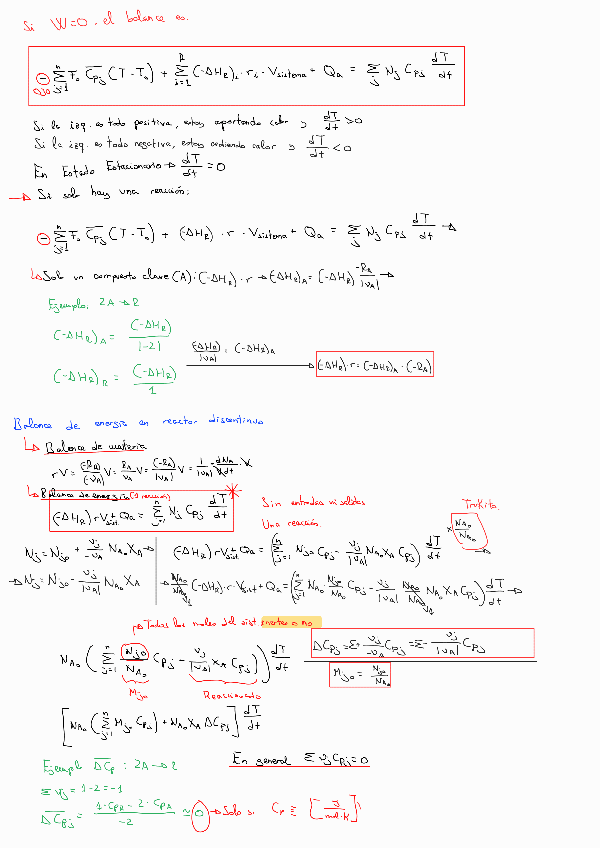 Si W=0, el balance es:
⊖ Σ_{j=1}^{n} F_o C̅_{Pj} (T - T_o) + Σ_{i=1}^{R} (-ΔH_R)_i · r_i · V_{sistema} + Q_a = Σ_j N_j C_{Pj} dT/dt
Ojo
Si la izq. es todo positiva, estoy aportando calor → dT/dt > 0
Si la izq. es todo negativa, estoy cediendo calor → dT/dt < 0
En Estado Estacionario → dT/dt = 0
→ Si solo hay una reacción:
⊖ Σ_{j=1}^{n} F_o C̅_{Pj} (T - T_o) + (-ΔH_R) · r · V_{sistema} + Q_a = Σ_j N_j C_{Pj} dT/dt →
↳ Solo un compuesto clave (A): (-ΔH_R) · r → (-ΔH_R)_A = (-ΔH_R) -R_A/|ν_A| →
Ejemplo: 2A → R
(-ΔH_R)_A = (-ΔH_R)/|-2|
(-ΔH_R)/|ν_A| = (-ΔH_R)_A
(-ΔH_R)_R = (-ΔH_R)/1
(-ΔH_R) · r = (-ΔH_R)_A · (-R_A)
Balance de energía en reactor discontinuo
↳ Balance de materia
rV = (-R_A)/(-ν_A) V = R_A/ν_A V = (-R_A)/|ν_A| V = 1/|ν_A| · -dN_A/V dt · V
↳ Balance de energía (1 reacción)
(-ΔH_R) r V_{sist.} + Q_a = Σ_{j=1}^{n} N_j C_{Pj} dT/dt
Sin entradas ni salidas
Una reacción.
Trokito
× N_{Ao}/N_{Ao}
N_j = N_{jo} + ν_j/-ν_A N_{Ao} X_A →
(-ΔH_R) r V_{sist} + Q_a = (Σ_{j=1}^{n} N_{jo} C_{Pj} - ν_j/|ν_A| N_{Ao} X_A C_{Pj}) dT/dt →
→ N_j = N_{jo} - ν_j/|ν_A| N_{Ao} X_A
N_{Ao}/N_{Ao} (-ΔH_R) · r · V_{sist} + Q_a = (Σ_{j=1}^{n} N_{Ao} · N_{jo}/N_{Ao} C_{Pj} - ν_j/|ν_A| N_{Ao}/N_{Ao} N_{Ao} X_A C_{Pj}) dT/dt →
→ Todos los moles del sist. inertes o no
N_{Ao} (Σ_{j=1}^{n} N_{jo}/N_{Ao} C_{Pj} - ν_j/|ν_A| X_A C_{Pj}) dT/dt
M_{jo}
Reaccionado
ΔC_{Pj} = Σ ν_j/-ν_A C_{Pj} = Σ - ν_j/|ν_A| C_{Pj}
M_{jo} = N_{jo}/N_{Ao}
[N_{Ao} (Σ_{j=1}^{n} M_{jo} C_{Pj}) + N_{Ao} X_A ΔC_{Pj}] dT/dt
Ejemplo ΔC̅_P : 2A → R
En general Σ ν_j C_{Pj} = 0
Σ ν_j = 1 - 2 = -1
ΔC̅_{Pj} = 1·C_{PR} - 2·C_{PA}/-2 ≈ 0 → Solo si C_P ≡ [J/mol·K]